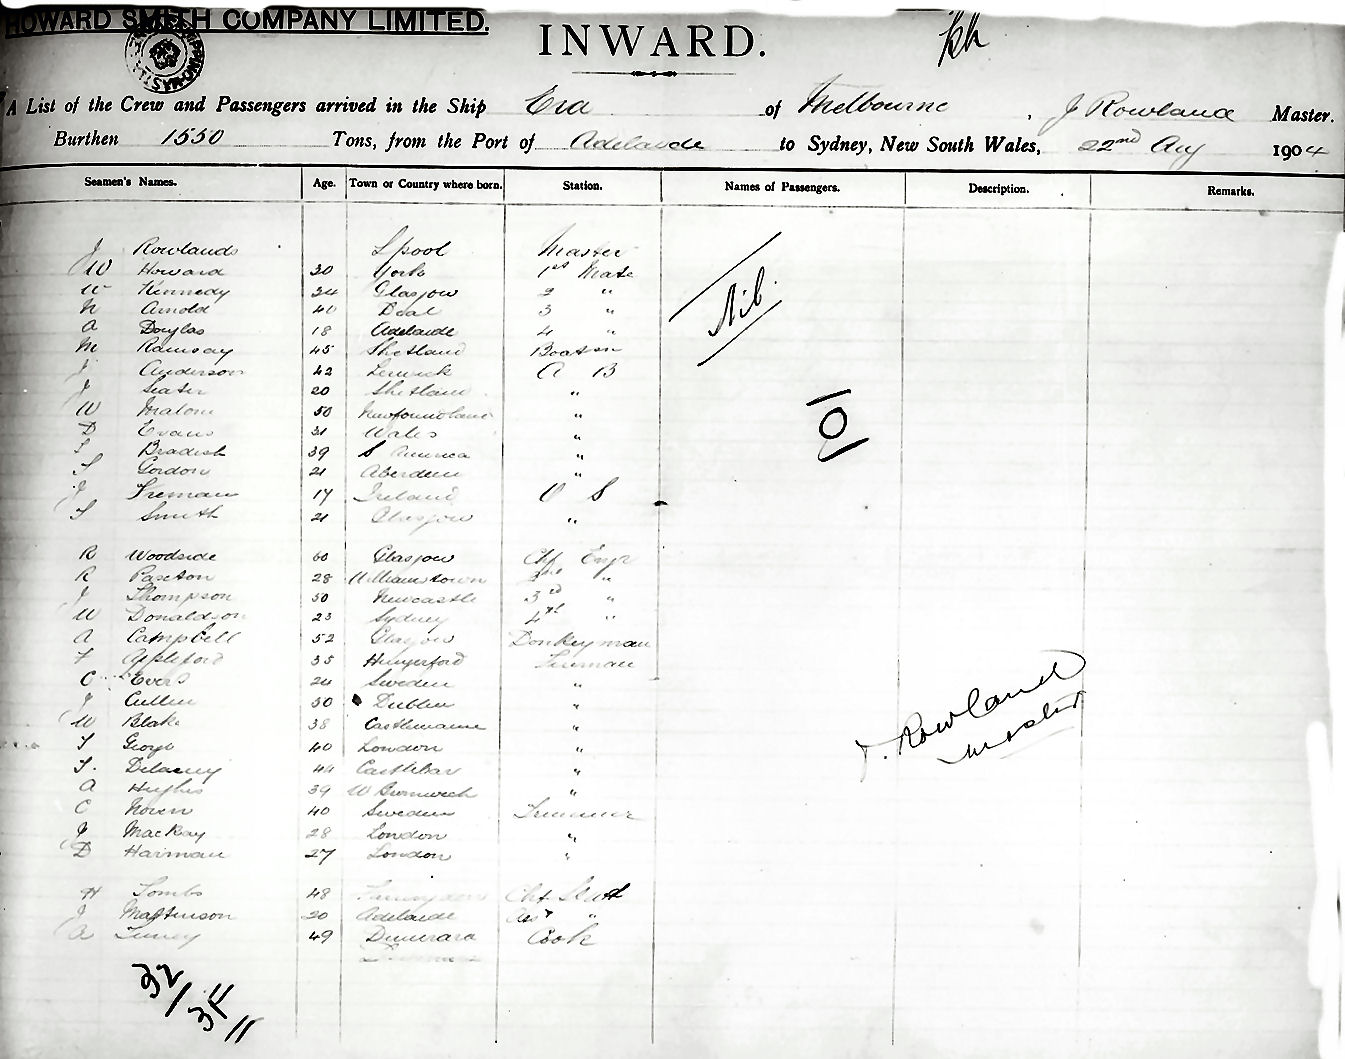 HOWARD SMITH COMPANY LIMITED.
INWARD.
A List of the Crew and Passengers arrived in the Ship Era of Melbourne, J Rowland Master.
Burthen 1550 Tons, from the Port of Adelaide to Sydney, New South Wales, 22nd Aug 1904
Seamen's Names. Age. Town or Country where born. Station. Names of Passengers. Description. Remarks.
J Rowlands L'pool Master
W Howard 30 York 1st Mate
W Kennedy 34 Glasgow 2 "
N Arnold 40 Deal 3 "
A Douglas 18 Adelaide 4 "
Nil.
M Ramsay 45 Shetland Boatsn
J Anderson 42 Lerwick A B
J 20 Shetland "
W Malone 50 Newfoundland "
D Evans 31 Wales "
Bradish 39 S America "
Gordon 21 Aberdeen "
J Freman 17 Ireland O S
Smith 21 Glasgow "
R Woodside 60 Glasgow Chf Engr
R Paxton 28 Williamstown 2nd "
J Thompson 50 Newcastle 3rd "
W Donaldson 23 Sydney 4th "
A Campbell 52 Glasgow Donkeyman
F Appleford 35 Hungerford Fireman
C Evers 24 Sweden "
J Cullen 50 Dublin "
W Blake 38 Castlemaine "
George 40 London "
Delaney 44 Castlebar "
A Hughes 39 W Bromwich "
C Noren 40 Sweden Trimmer
J MacKay 28 London "
D Harman 27 London "
J. Rowland
Master
H Tombs 48 Chf Stwd
J Mattinson 20 Adelaide Asst "
A 49 Demerara Cook
32